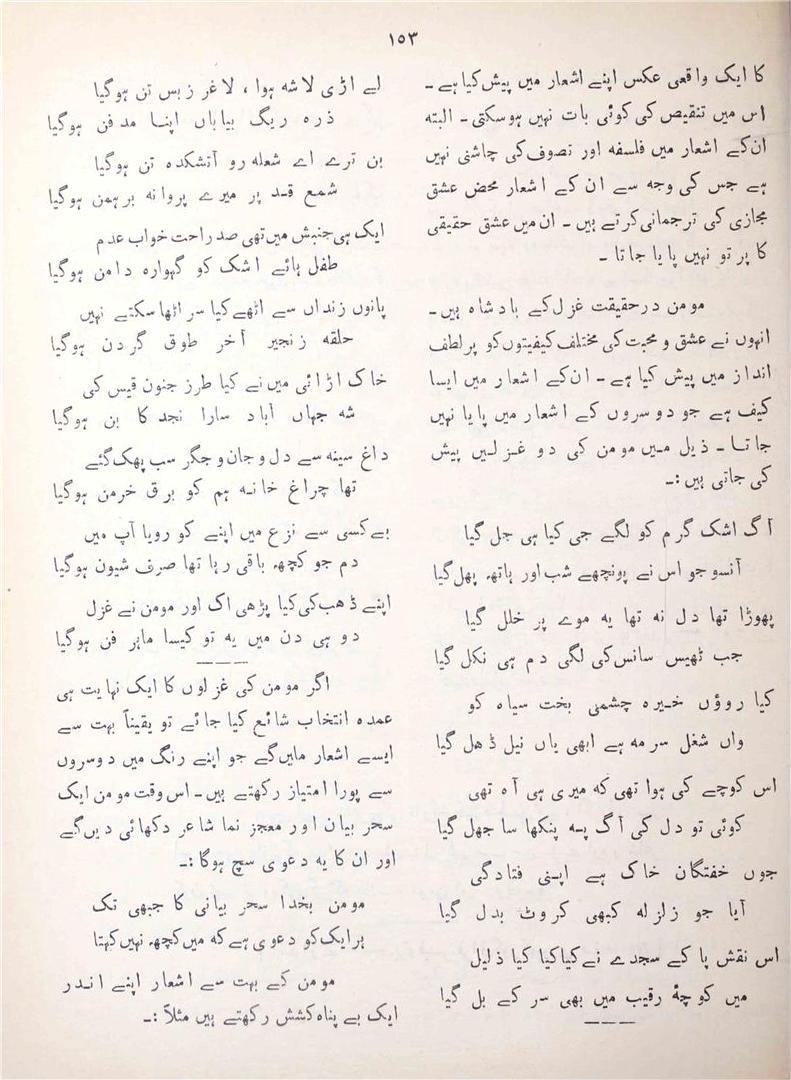 ۱۵۳
کا ایک واقعی عکس اپنے اشعار میں پیش کیا ہے ۔
اس میں تنقیص کی کوئی بات نہیں ہوسکتی ۔ البتہ
ان کے اشعار میں فلسفہ اور تصوف کی چاشنی نہیں
ہے جس کی وجہ سے ان کے اشعار محض عشق
مجازی کی ترجمانی کرتے ہیں ۔ ان میں عشق حقیقی
کا پرتو نہیں پایا جاتا ۔
مومن درحقیقت غزل کے بادشاہ ہیں ۔
انہوں نے عشق و محبت کی مختلف کیفیتوں کو پرلطف
انداز میں پیش کیا ہے ۔ ان کے اشعار میں ایسا
کیف ہے جو دوسروں کے اشعار میں پایا نہیں
جاتا ۔ ذیل میں مومن کی دو غزلیں پیش
کی جاتی ہیں :۔
آگ اشک گرم کو لگے جی کیا ہی جل گیا
آنسو جو اس نے پونچھے شب اور ہاتھ پھل گیا
پھوڑا تھا دل نہ تھا یہ موے پر خلل گیا
جب ٹھیس سانس کی لگی دم ہی نکل گیا
کیا روؤں خیرہ چشمئی بخت سیاہ کو
واں شغل سرمہ ہے ابھی یاں نیل ڈھل گیا
اس کوچے کی ہوا تھی کہ میری ہی آہ تھی
کوئی تو دل کی آگ پہ پنکھا سا جھل گیا
جوں خفتگان خاک ہے اپنی فتادگی
آیا جو زلزلہ کبھی کروٹ بدل گیا
اس نقش پا کے سجدے نے کیا کیا کیا ذلیل
میں کوچۂ رقیب میں بھی سر کے بل گیا
لے اڑی لاشہ ہوا ، لاغر زبس تن ہوگیا
ذرہ ریگ بیاباں اپنا مدفن ہوگیا
بن ترے اے شعلہ رو آتشکدہ تن ہوگیا
شمع قد پر میرے پروانہ برہمن ہوگیا
ایک ہی جنبش میں تھی صد راحت خواب عدم
طفل ہائے اشک کو گہوارہ دامن ہوگیا
پانوں زنداں سے اٹھے کیا سر اٹھا سکتے نہیں
حلقہ زنجیر آخر طوق گردن ہوگیا
خاک اڑائی میں نے کیا طرز جنون قیس کی
شہ جہاں آباد سارا نجد کا بن ہوگیا
داغ سینہ سے دل و جان و جگر سب پھک گئے
تھا چراغ خانہ ہم کو برق خرمن ہوگیا
بےکسی سے نزع میں اپنے کو رویا آپ میں
دم جو کچھ باقی رہا تھا صرف شیون ہوگیا
اپنے ڈھب کی کیا پڑھی اک اور مومن نے غزل
دو ہی دن میں یہ تو کیسا ماہر فن ہوگیا
اگر مومن کی غزلوں کا ایک نہایت ہی
عمدہ انتخاب شائع کیا جائے تو یقیناً بہت سے
ایسے اشعار مایں گے جو اپنے رنگ میں دوسروں
سے پورا امتیاز رکھتے ہیں ۔ اس وقت مومن ایک
سحر بیان اور معجز نما شاعر دکھائی دیں گے
اور ان کا یہ دعوی سچ ہوگا :۔
مومن بخدا سحر بیانی کا جبھی تک
ہر ایک کو دعوی ہے کہ میں کچھ نہیں کہتا
مومن کے بہت سے اشعار اپنے اندر
ایک بے پناہ کشش رکھتے ہیں مثلاً :۔